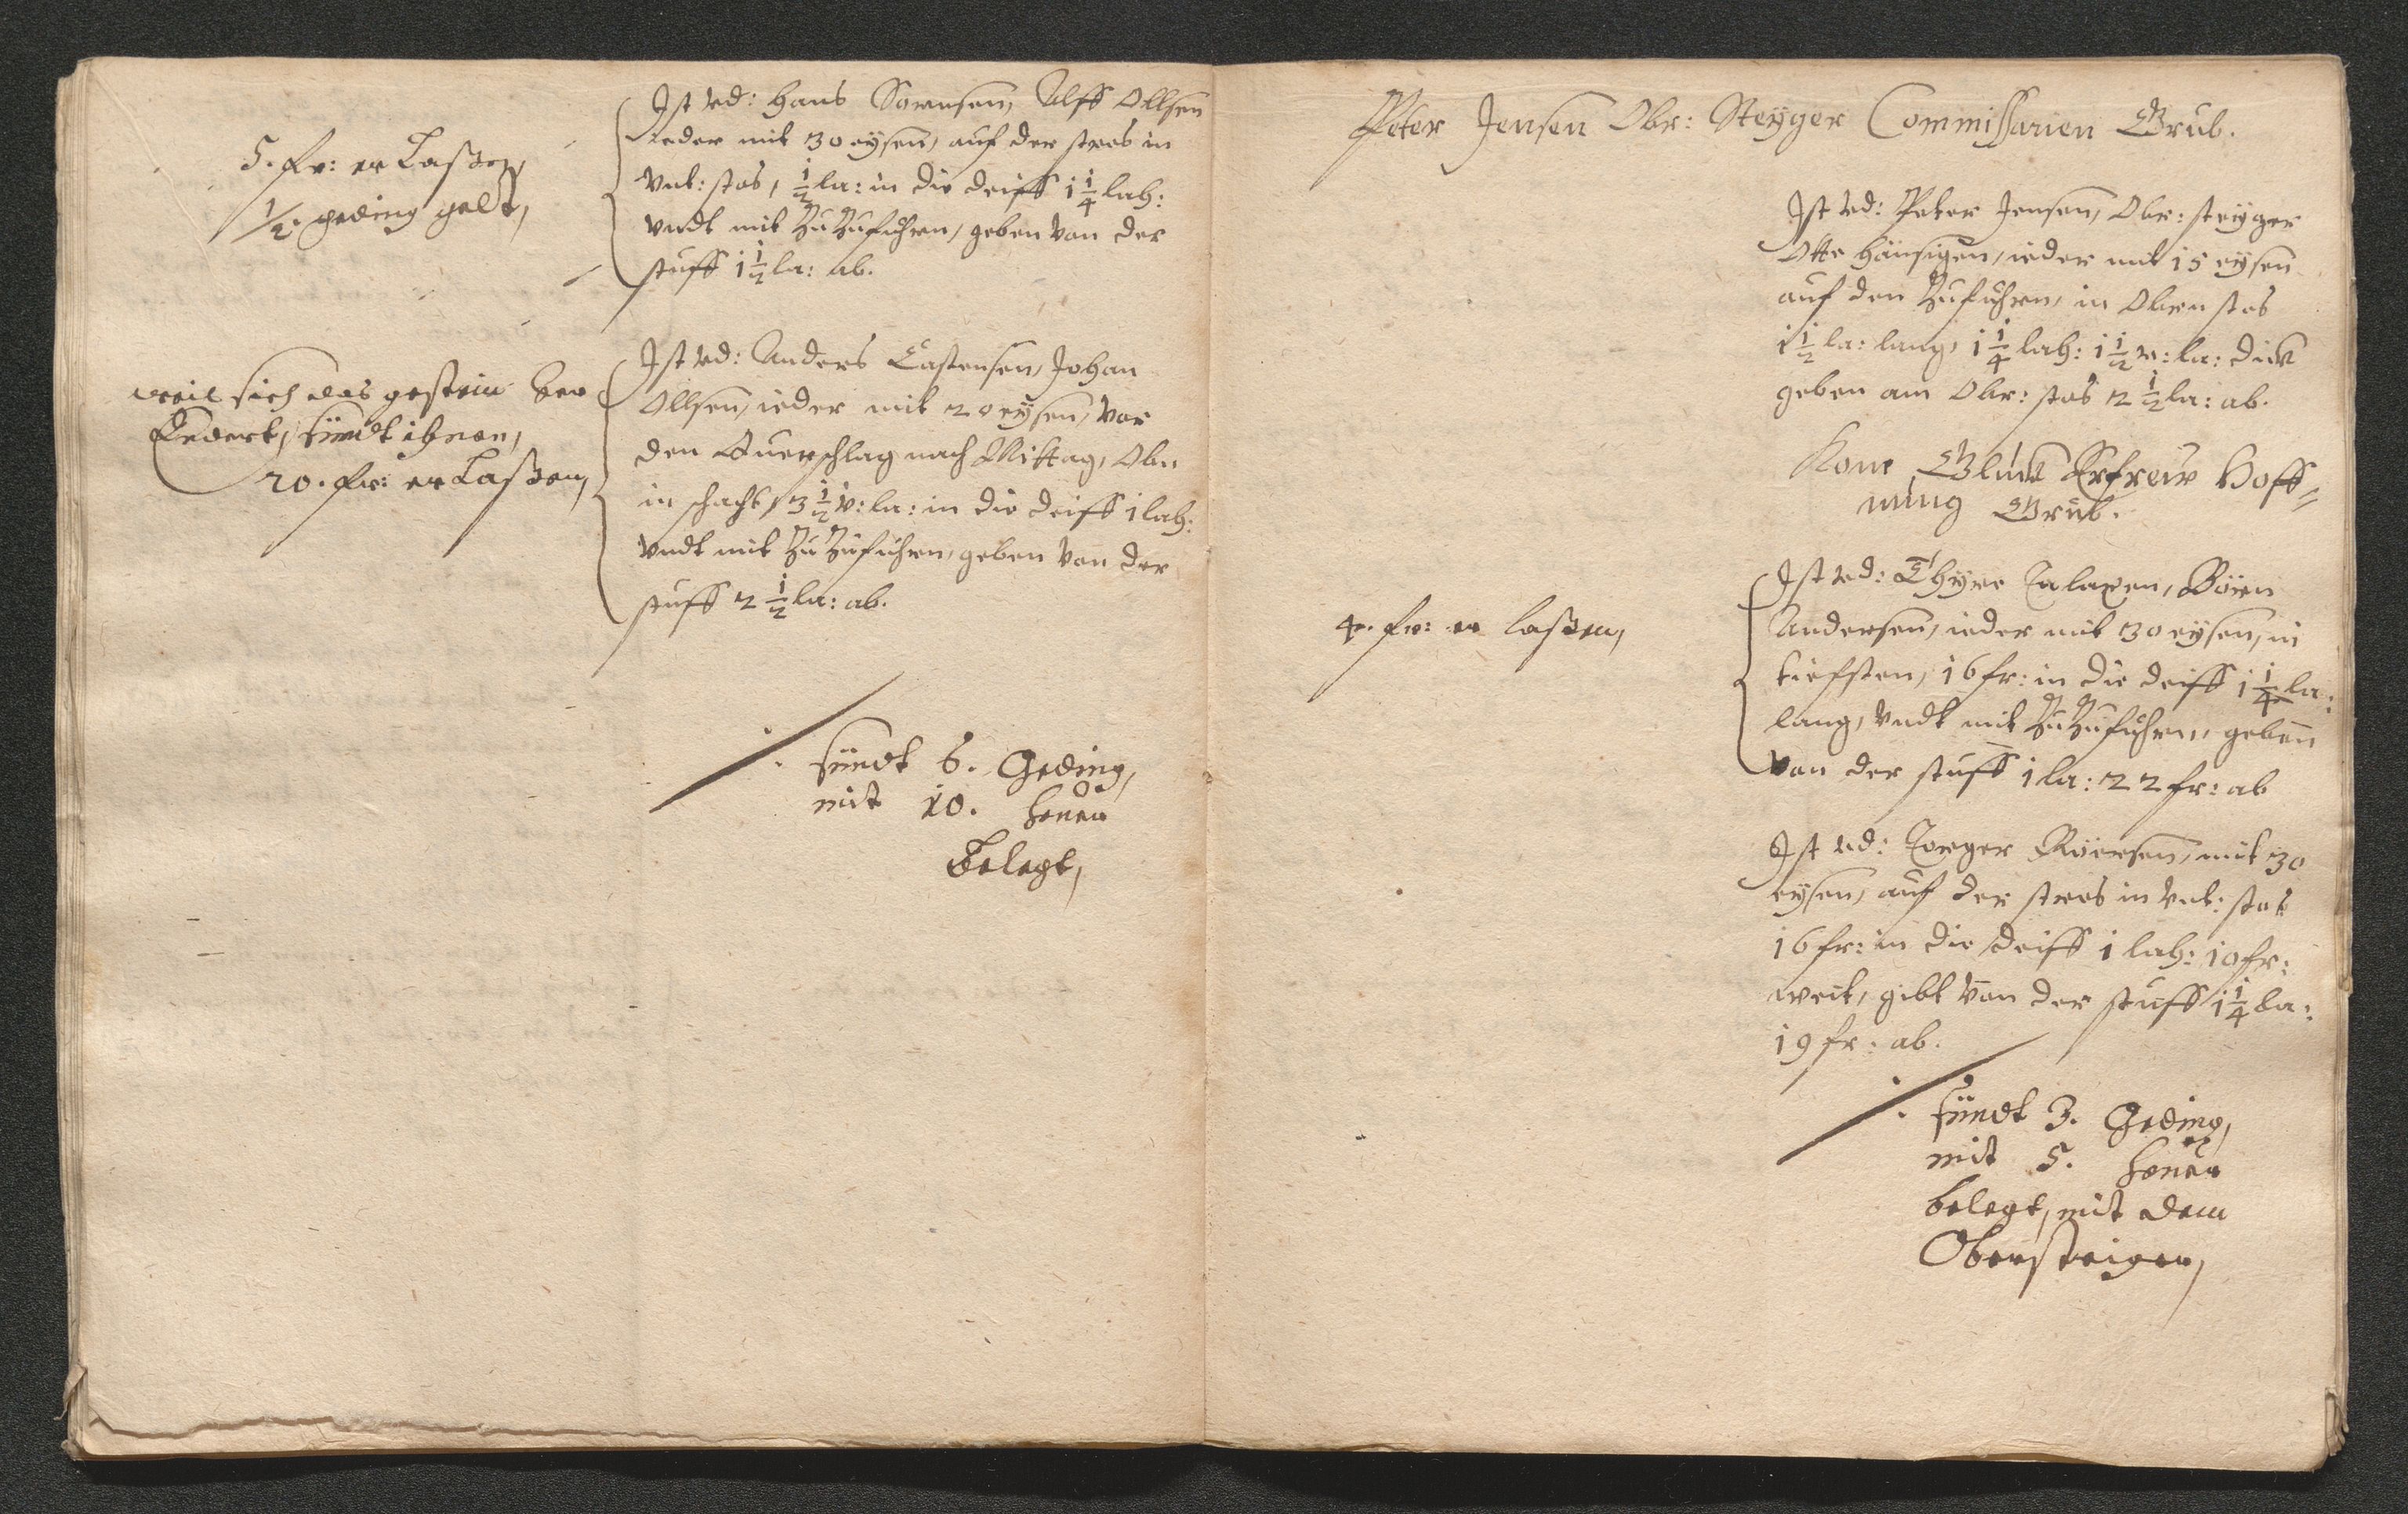 5. fr: er Laßen,
1/2. geding gelt,
Ist vd: Hans Sörensen, Ulff Ollsen
ieder mit 30 eÿsen, auf der stros in
Vnt: stos, 1/2 la: in die deiff 1 1/4 lah:
vndt mit Zu Zufuhren, geben von der
stuff 1 1/2 la: ab.
weil sich das gestein ver
Endert, sündt ihnen,
20. fr: er Laßen,
Ist vd: Anders Castensen, Johan
Ollsen, ieder mit 20 eÿsen, vor
den Querschlag nach Mittag, Obn
in schacht, 3 1/2 v: la: in die deiff 1 lah:
vndt mit Zu Zufuhren, geben von der
stuff 2 1/2 la: ab.
sündt 6. Geding,
mit 10. heuer
belegt,
Peter Jensen Obr: Steÿger Commissarien Grub.
Ist vd: Peter Jensen, Obr: steÿger
Otte Hansigen, ieder mit 15 eÿsen
auf den Zufuhren, in Oben stos
1 1/2 la: lang, 1 1/4 lah: 1 1/2 v: la: dick
geben am Obr: stos 2 1/2 la: ab.
Kone Glück Erfreur Hoff=
nung Grub.
4. fr: er laßen,
Ist vd: Thÿre Andersen, ieder mit 30 eÿsen, in
tiefsten, 16 fr: in die deiff 1 1/4 la:
lang, vndt mit Zu Zufuhren, geben
von der stuff 1 la: 22 fr: ab
Ist vd: Torger Röersen, mit 30
eÿsen, auf der stros in vnt: stos
16 fr: in die deiff 1 lah: 10 fr:
weit, gibt von der stuff 1 1/4 la:
19 fr: ab.
sündt 3. Geding,
mit 5. heuer
belegt, mit dem
Obersteiger,